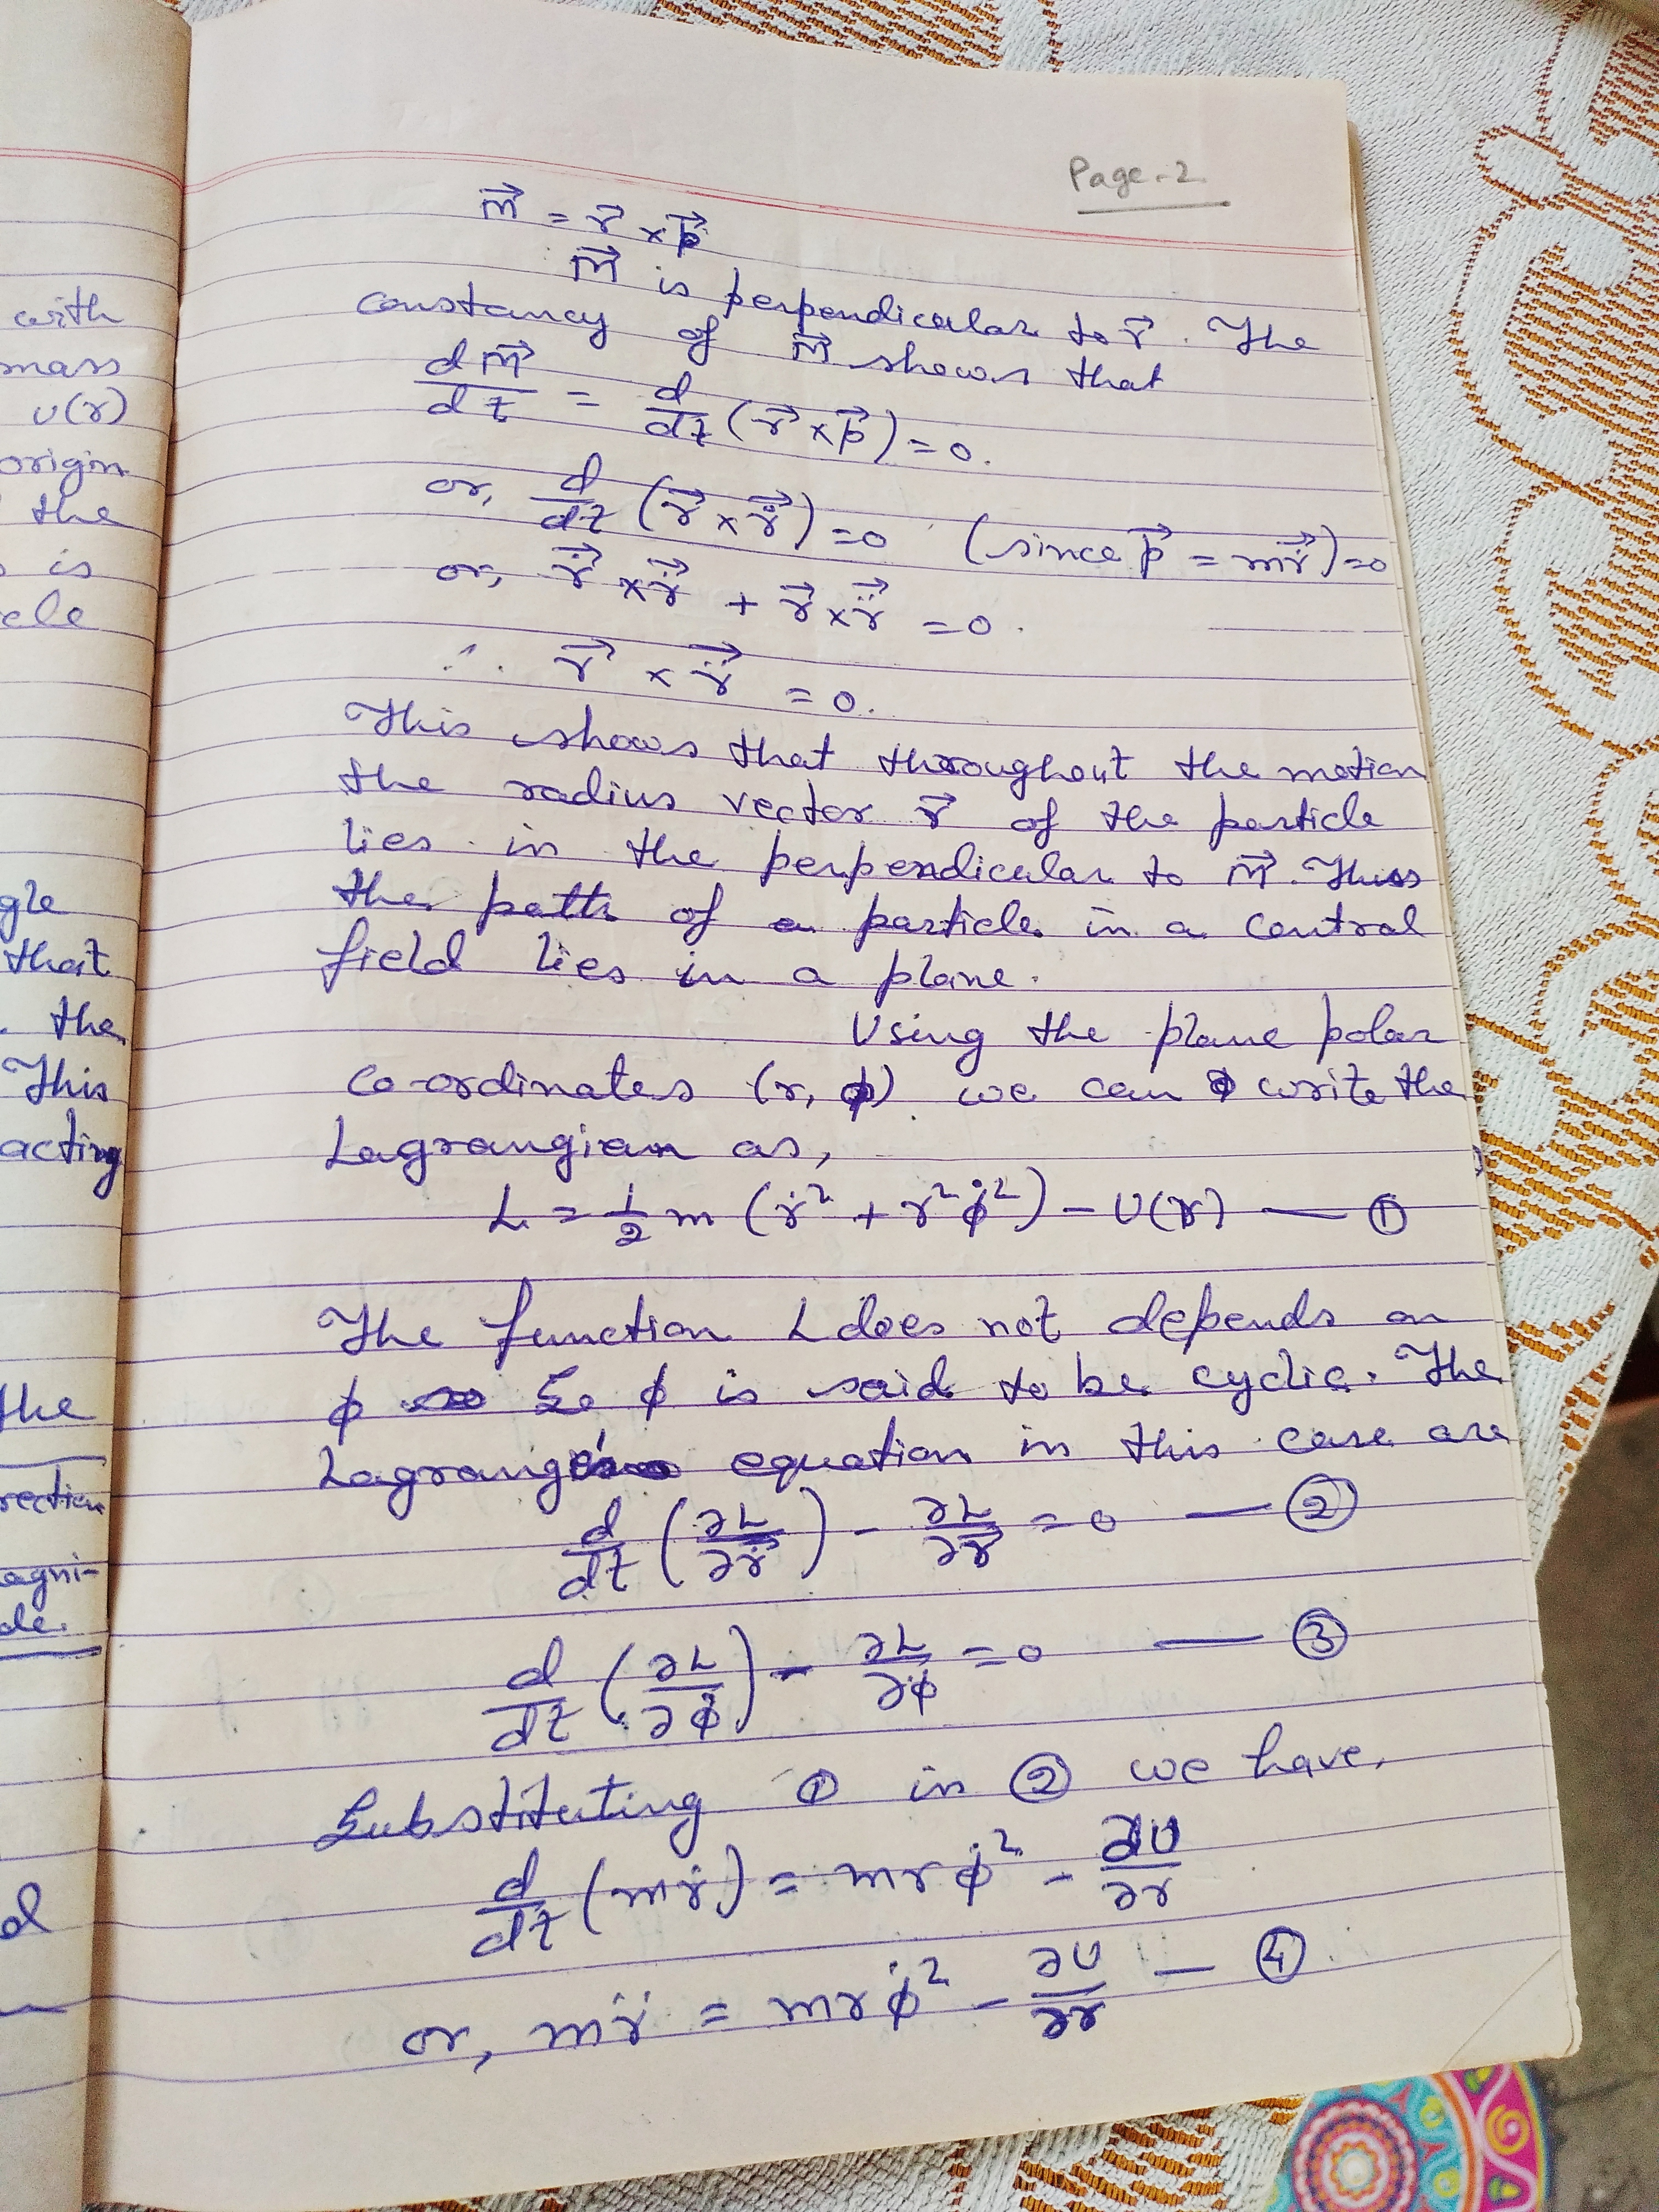 with
mass
U(r)
origin
the
is
cle
gle
that
. the
This
acting
the
rection
agni-
de.
d
Page-2
m⃗ = r⃗ × p⃗
m⃗ is perpendicular to r⃗. The
constancy of m⃗ shows that
dm⃗/dt = d/dt (r⃗ × p⃗) = 0.
or, d/dt (r⃗ × ṙ⃗) = 0 (since p⃗ = mṙ⃗) = 0
or, ṙ⃗ × ṙ⃗ + r⃗ × r̈⃗ = 0.
∴ r⃗ × r̈⃗ = 0.
This shows that throughout the motion
the radius vector r⃗ of the particle
lies in the perpendicular to m⃗. Thus
the path of a particle in a central
field lies in a plane.
Using the plane polar
co-ordinates (r, ϕ) we can write the
Lagrangian as,
L = 1/2 m (ṙ² + r²ϕ̇²) − U(r) — ①
The function L does not depends on
ϕ So ϕ is said to be cyclic. The
Lagrange's equation in this case are
d/dt (∂L/∂ṙ) − ∂L/∂r = 0 — ②
d/dt (∂L/∂ϕ̇) − ∂L/∂ϕ = 0 — ③
Substituting ① in ② we have,
d/dt (mṙ) = mrϕ̇² − ∂U/∂r
or, mr̈ = mrϕ̇² − ∂U/∂r — ④